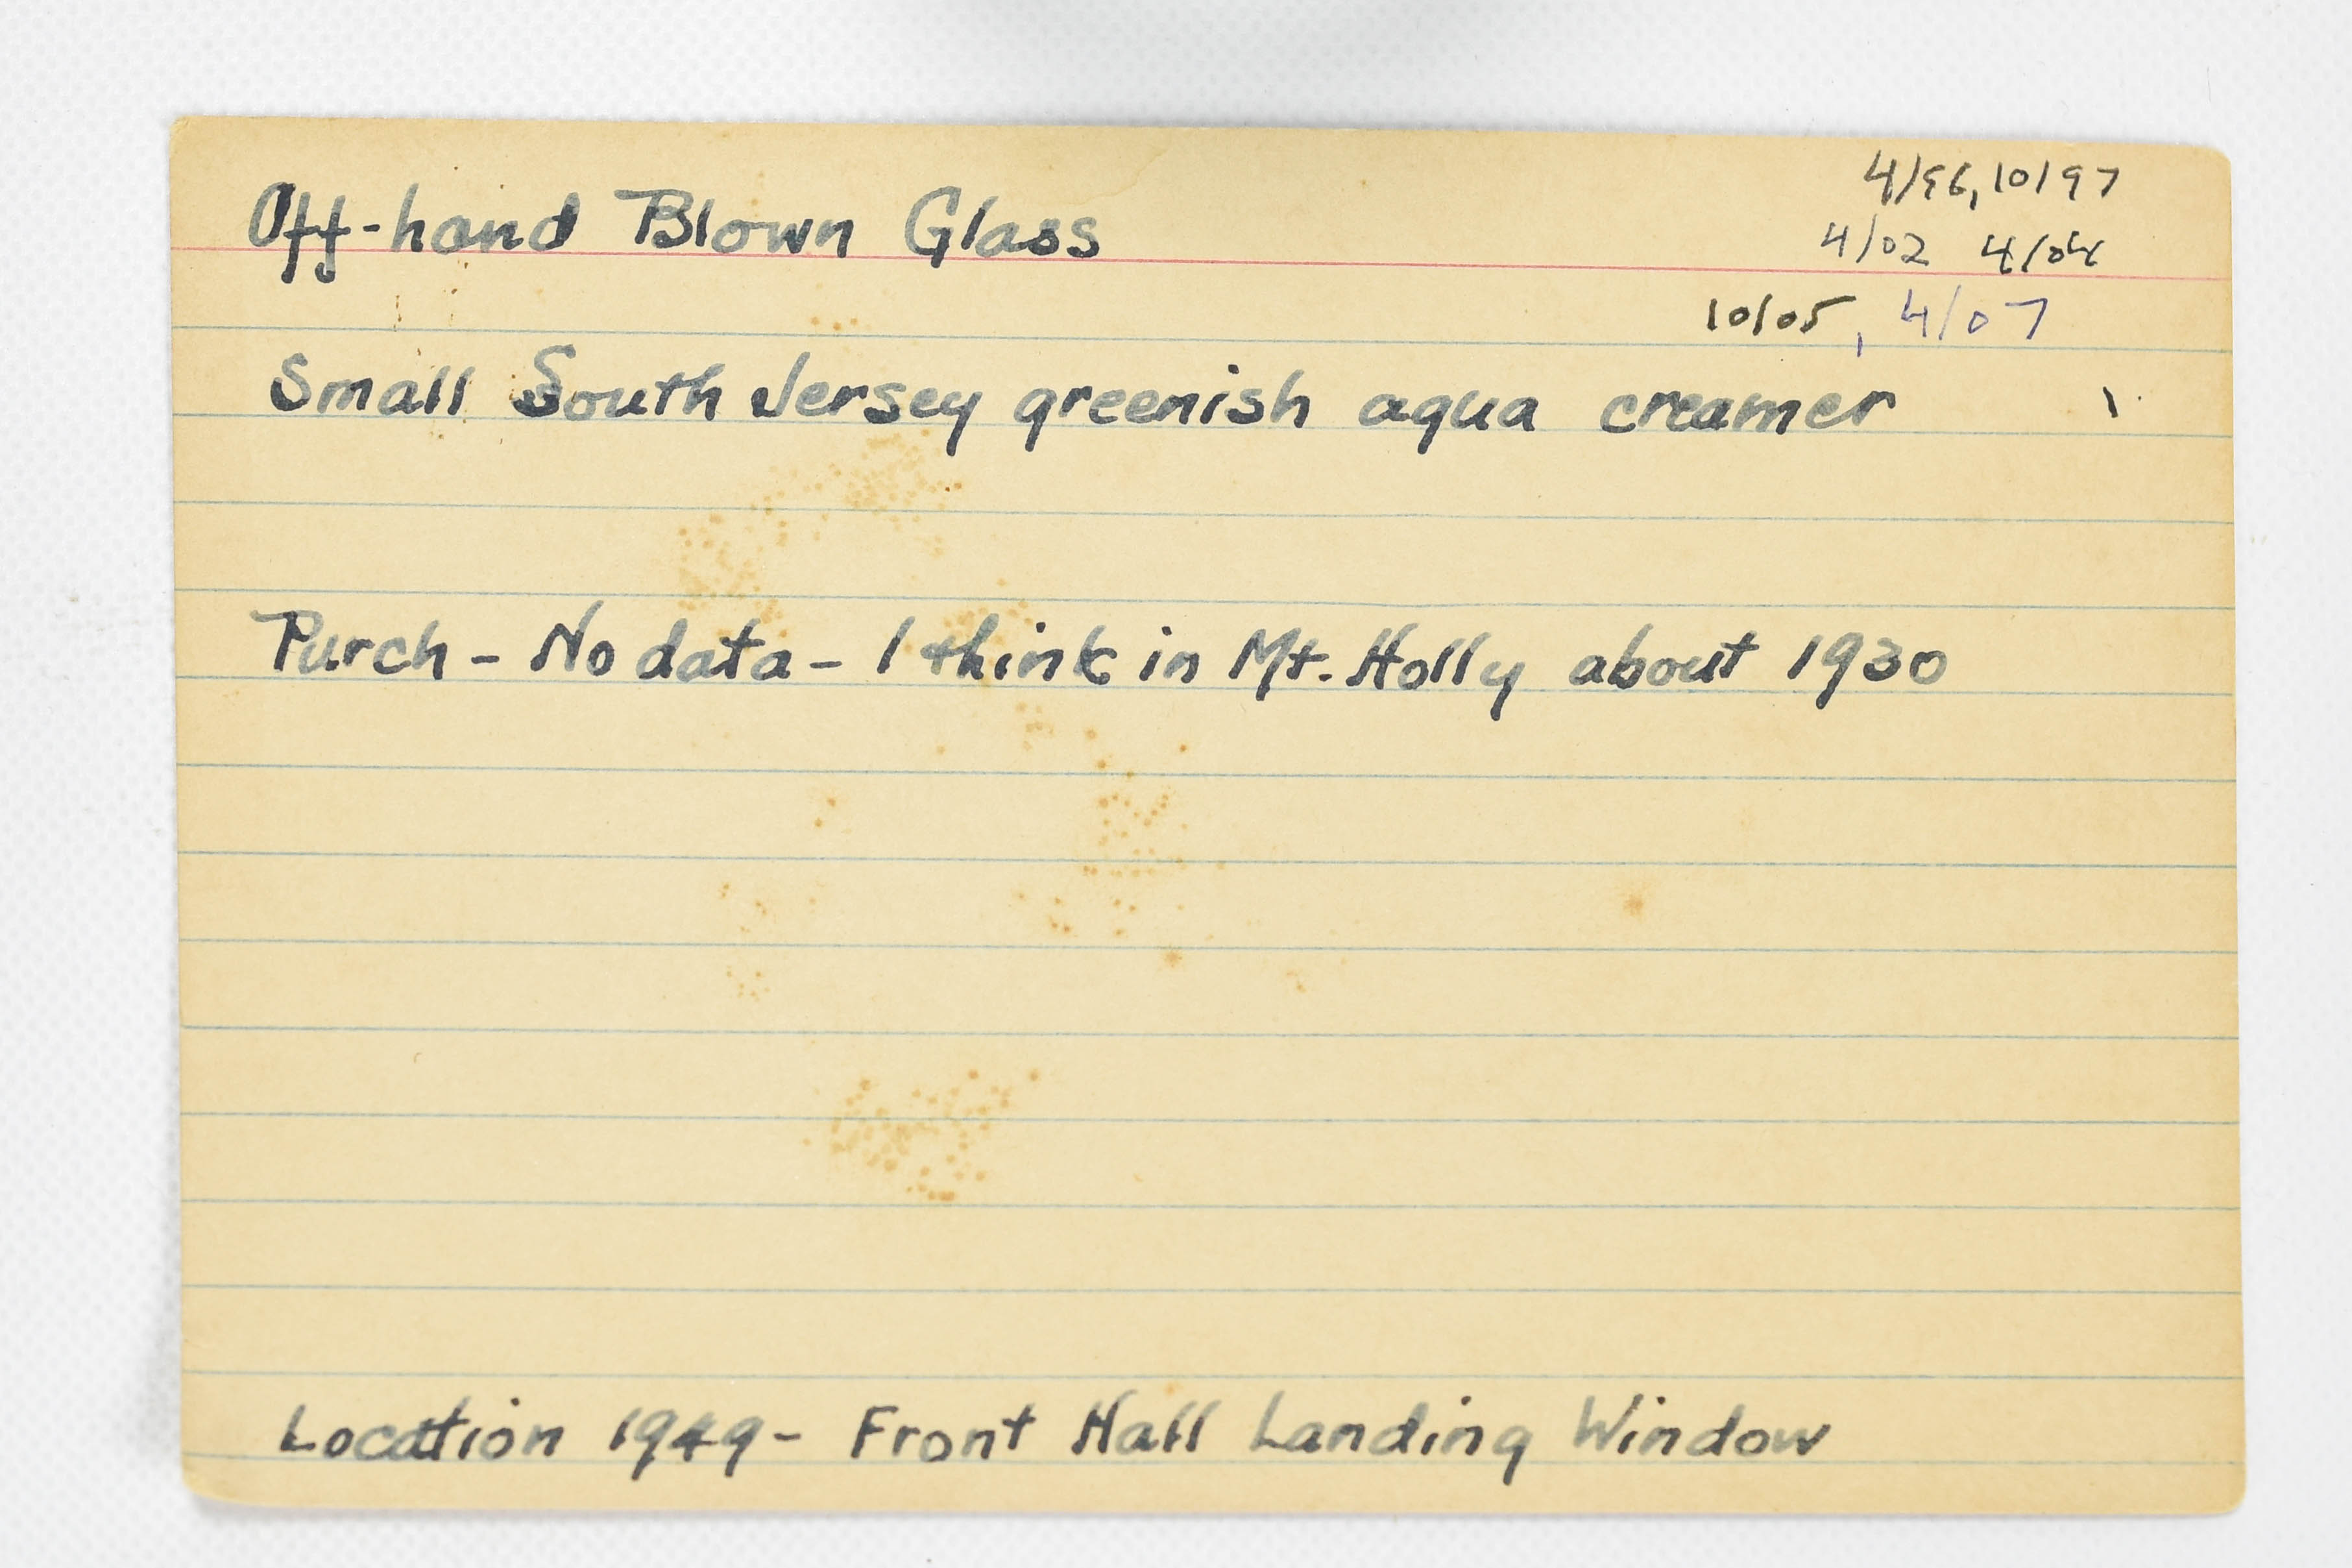 Off-hand Blown Glass
4/96, 10/97
4/02 4/04
10/05, 4/07
Small South Jersey greenish aqua creamer
Purch - No data - I think in Mt. Holly about 1930
Location 1949 - Front Hall Landing Window